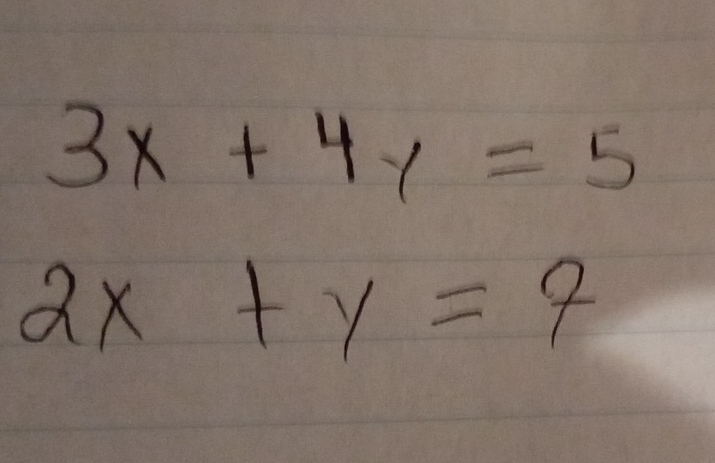 3x + 4y = 5
2x + y = 7